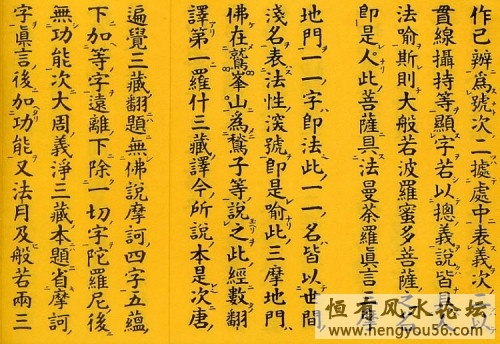 作已辨為號次二據處中表義次一以
貫線攝持等顯字若以摠義說皆具人
法喻斯則大般若波羅蜜多菩薩之名
即是人此菩薩具法曼荼羅眞言三摩
地門一一字即法此一一名皆以世間
淺名表法性深號即是喻此三摩地門
佛在鷲峯山為鶖子等說之此經數翻
譯第一羅什三藏譯今所說本是次唐
遍覺三藏翻題無佛說摩訶四字五蘊
下加等字遠離下除一切字陀羅尼後
無功能次大周義淨三藏本題省摩訶
字眞言後加功能又法月及般若兩三
恒有风水论坛
www.hengyou56.com